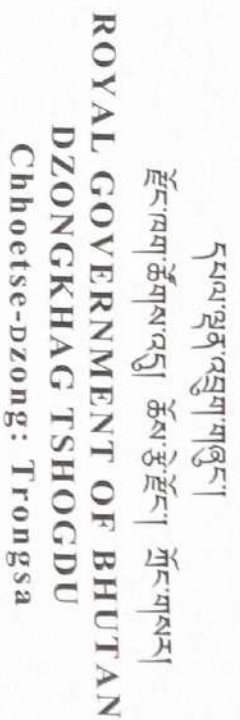 དཔལ་ལྡན་འབྲུག་གཞུང་།
རྫོང་ཁག་ཚོགས་འདུ། ཆོས་རྩེ་རྫོང་། ཀྲོང་གསར།
ROYAL GOVERNMENT OF BHUTAN
DZONGKHAG TSHOGDU
Chhoetse-Dzong: Trongsa